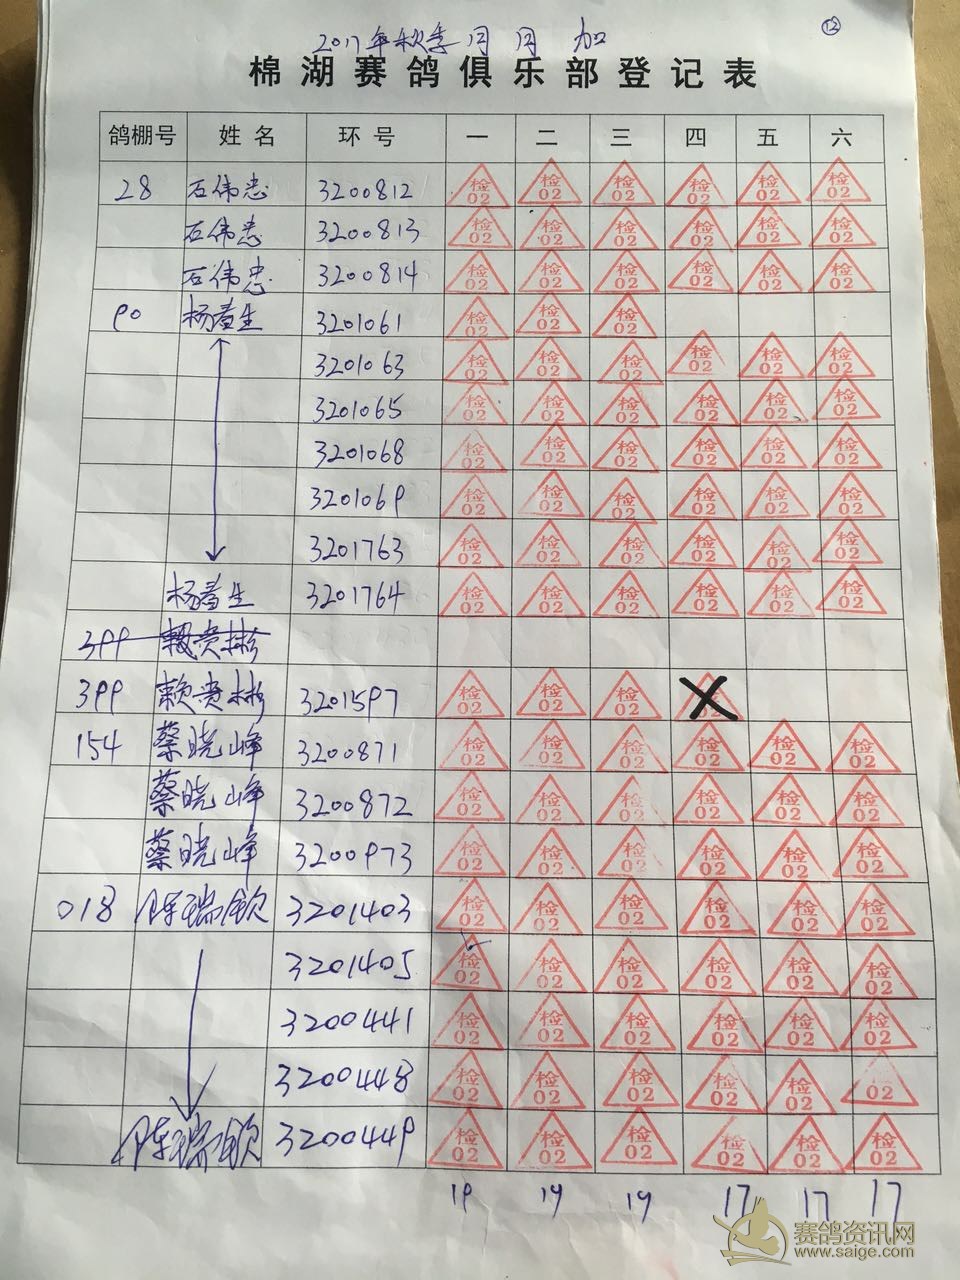 12
2017年秋季 月 日 加
棉湖赛鸽俱乐部登记表
鸽棚号 姓名 环号 一 二 三 四 五 六
28 石伟忠 3200812 检02 检02 检02 检02 检02 检02
石伟忠 3200813 检02 检02 检02 检02 检02 检02
石伟忠 3200814 检02 检02 检02 检02 检02 检02
90 杨 生 3201061 检02 检02 检02
3201063 检02 检02 检02 检02 检02 检02
3201065 检02 检02 检02 检02 检02 检02
3201068 检02 检02 检02 检02 检02 检02
3201069 检02 检02 检02 检02 检02 检02
3201763 检02 检02 检02 检02 检02 检02
杨 生 3201764 检02 检02 检02 检02 检02 检02
399 赖贵彬
399 赖贵彬 3201597 检02 检02 检02 检02
154 蔡晓峰 3200871 检02 检02 检02 检02 检02 检02
蔡晓峰 3200872 检02 检02 检02 检02 检02 检02
蔡晓峰 3200973 检02 检02 检02 检02 检02 检02
018 陈瑞钦 3201403 检02 检02 检02 检02 检02 检02
3201405 检02 检02 检02 检02 检02 检02
3200441 检02 检02 检02 检02 检02 检02
3200448 检02 检02 检02 检02 检02 检02
陈瑞钦 3200449 检02 检02 检02 检02 检02 检02
19 19 19 17 17 17
赛鸽资讯网
www.saige.com